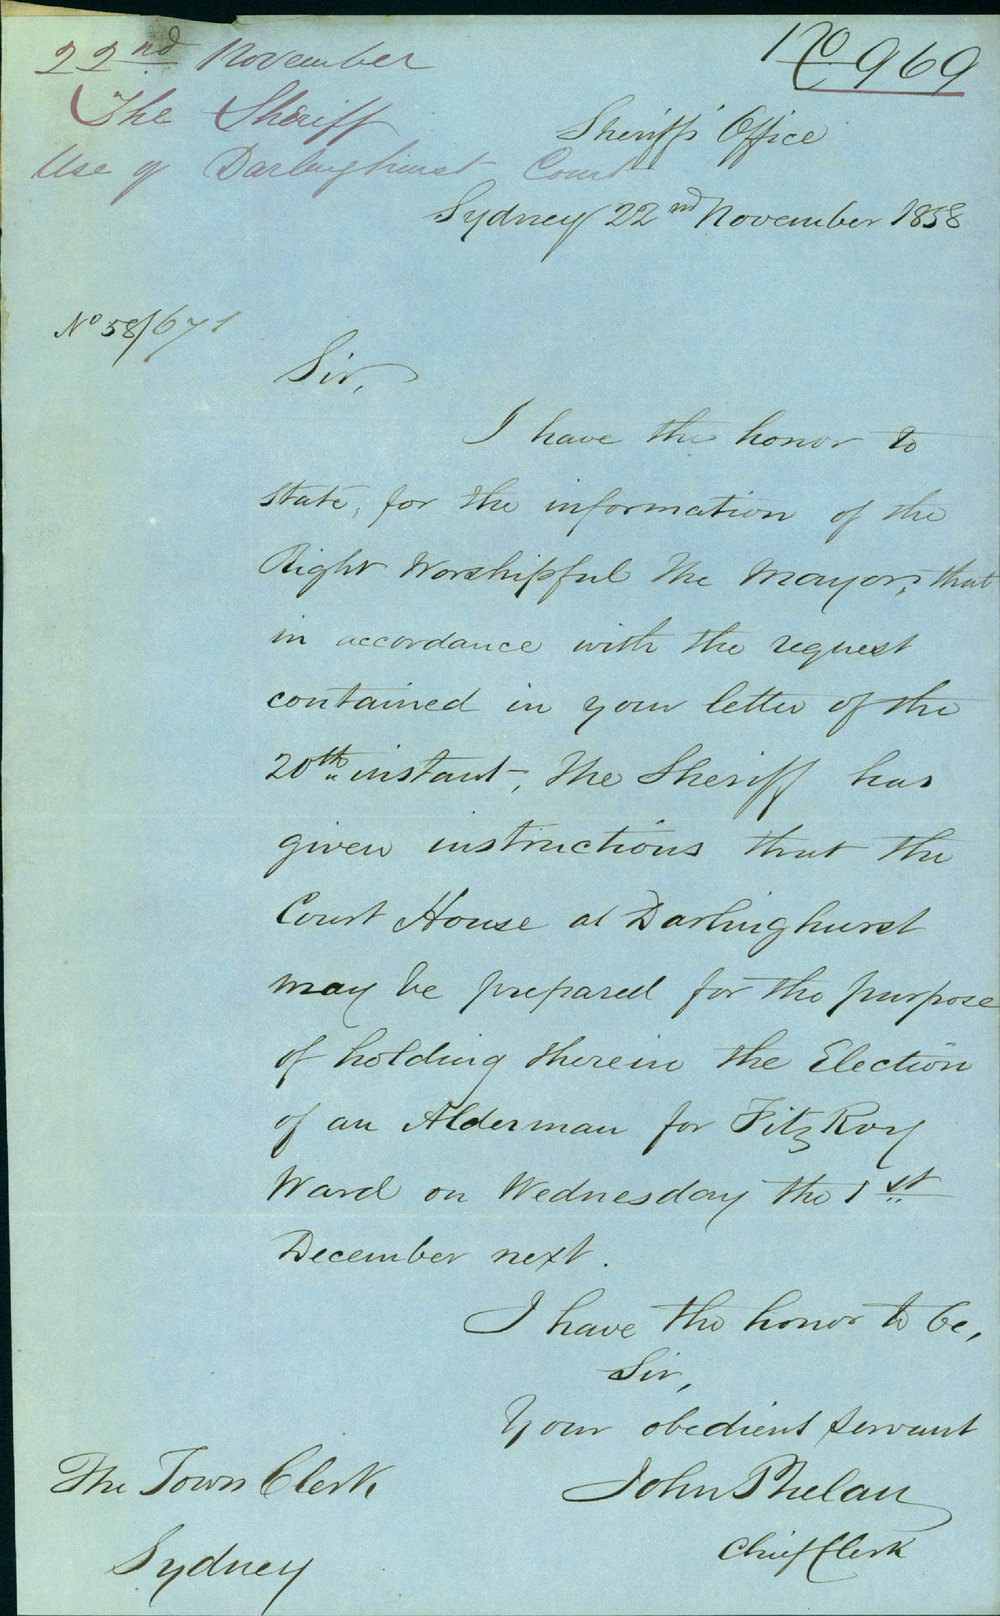 22nd November
The Sheriff
Use of Darlinghurst Court
No 969
Sheriff's Office
Sydney 22nd November 1858
No 58/671
Sir,
I have the honor to
state, for the information of the
Right Worshipful The Mayor, that
in accordance with the request
contained in your letter of the
20th instant, The Sheriff has
given instructions that the
Court House at Darlinghurst
may be prepared for the purpose
of holding therein the Election
of an Alderman for Fitz Roy
Ward on Wednesday the 1st
December next.
I have the honor to be,
Sir,
Your obedient servant
John Phelan
Chief Clerk
The Town Clerk
Sydney